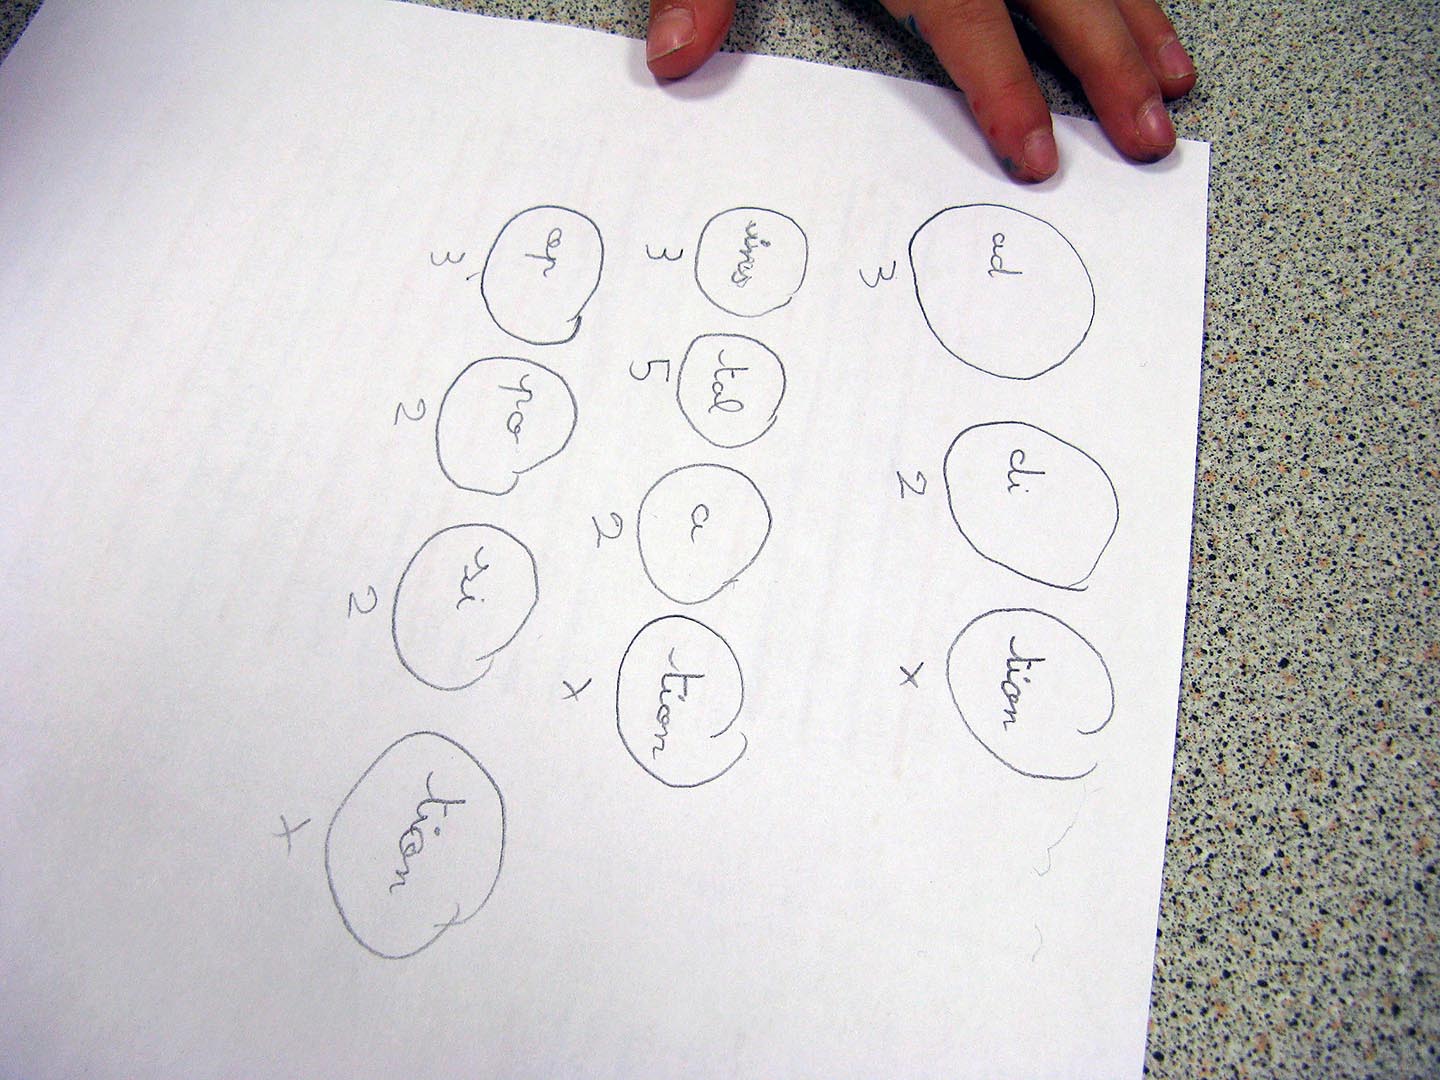 ad di tion
3 2 x
ins tal a tion
3 5 2 x
op po si tion
3 2 2 x